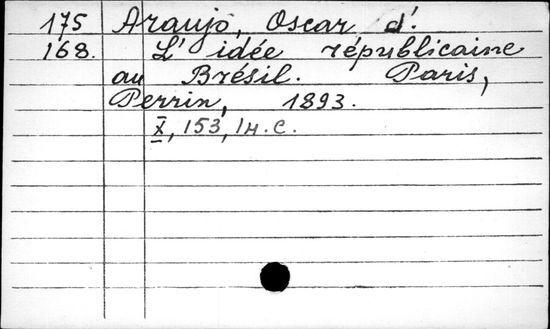 175 Araujo, Oscar d'.
168. L'idée républicaine
au Brésil. Paris,
Perrin, 1893.
X, 153, 1н. с.